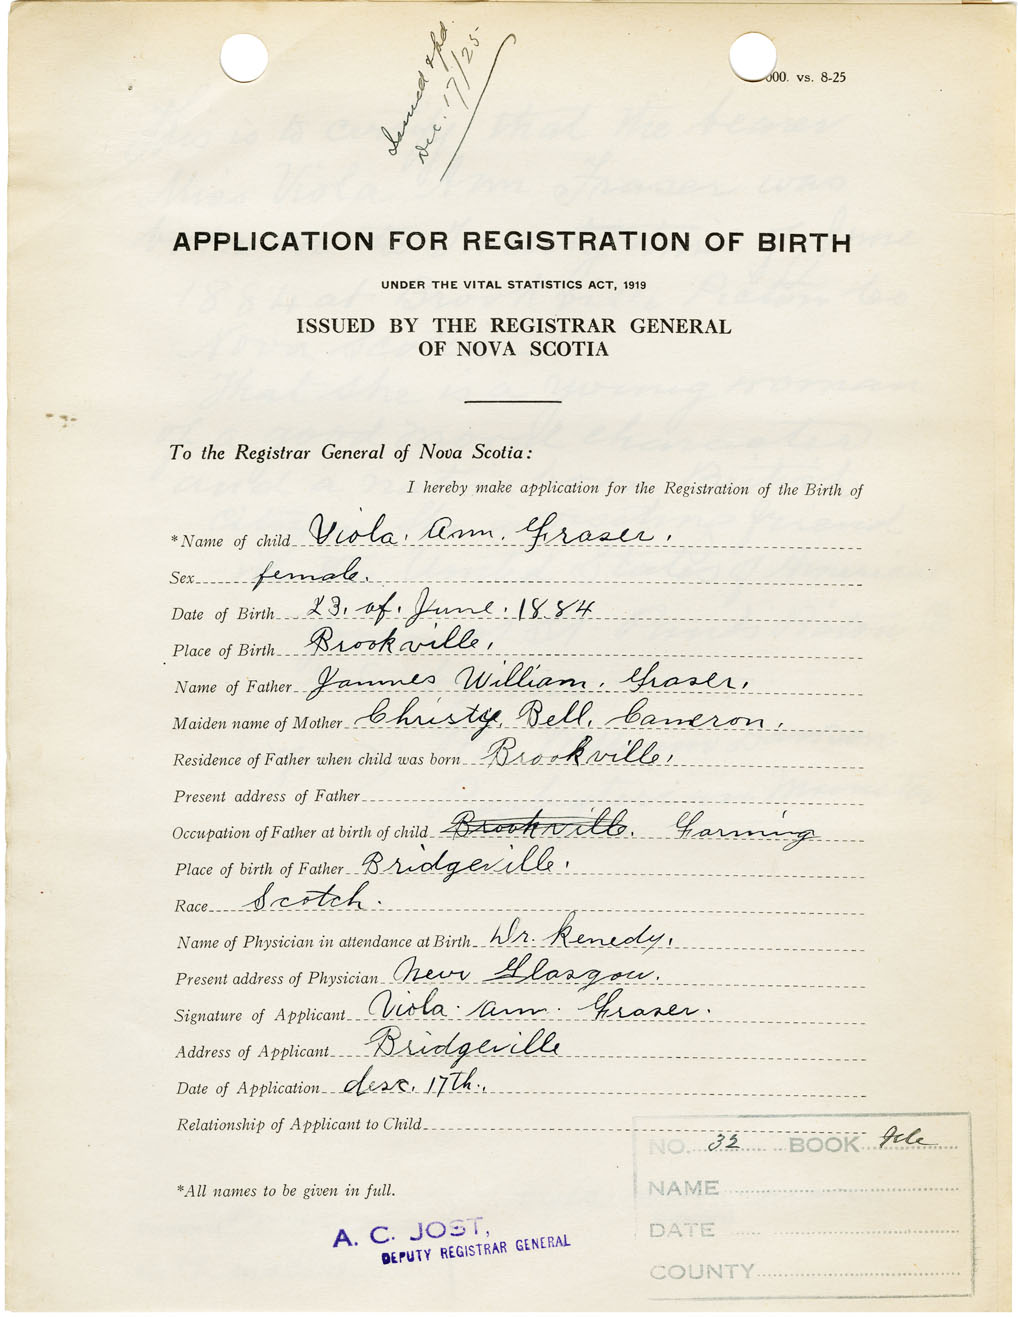 Issued & pd.
Dec. 17/25
000. vs. 8-25
APPLICATION FOR REGISTRATION OF BIRTH
UNDER THE VITAL STATISTICS ACT, 1919
ISSUED BY THE REGISTRAR GENERAL
OF NOVA SCOTIA
To the Registrar General of Nova Scotia:
I hereby make application for the Registration of the Birth of
*Name of child Viola. Ann. Fraser.
Sex female.
Date of Birth 23. of. June. 1884
Place of Birth Brookville.
Name of Father Jammes William. Fraser.
Maiden name of Mother Christy. Bell. Cameron.
Residence of Father when child was born Brookville.
Present address of Father
Occupation of Father at birth of child Brookville. Farming
Place of birth of Father Bridgeville.
Race Scotch.
Name of Physician in attendance at Birth Dr. Kenedy.
Present address of Physician New Glasgow.
Signature of Applicant Viola. Ann. Fraser.
Address of Applicant Bridgeville
Date of Application desc. 17th.
Relationship of Applicant to Child
NO. 32 BOOK File
NAME
DATE
COUNTY
*All names to be given in full.
A. C. JOST,
DEPUTY REGISTRAR GENERAL